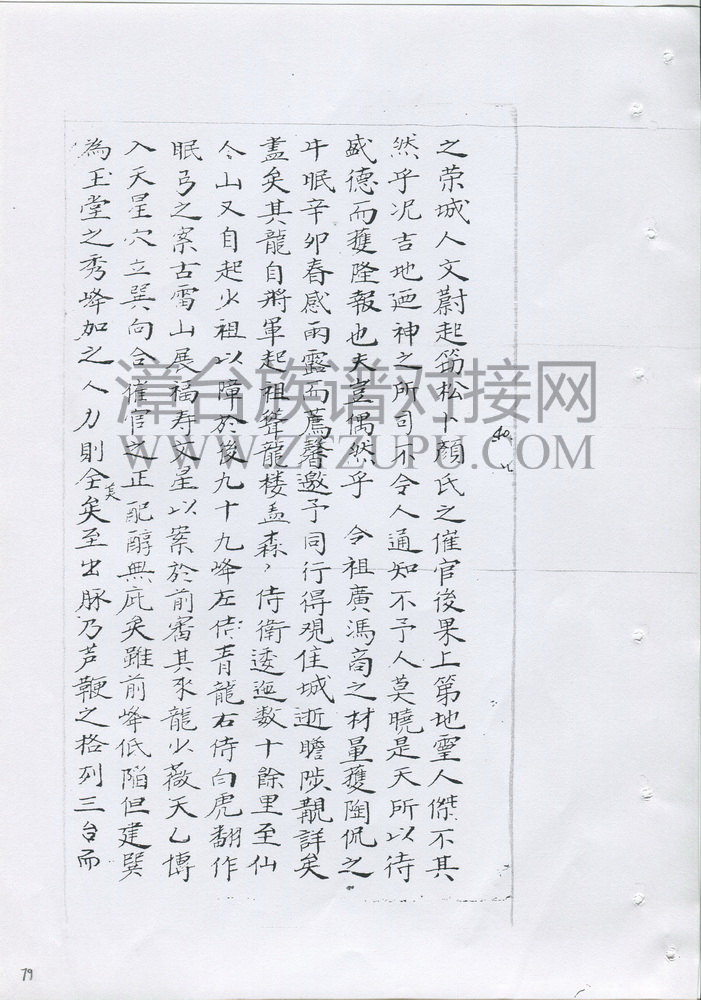 之荣城人文蔚起笻松卜顏氏之催官後果上第地靈人傑不其
然乎况吉地廼神之所司不令人通知不予人莫曉是天所以待
盛德而獲隆報也夫豈偶然乎 今祖廣馮商之材量獲陶侃之
牛眠辛卯春感雨露而薦馨邀予同行得观佳城逝瞻陟覩詳矣
盡矣其龍自將軍起祖聳龍楼盖森々侍衛逶迤数十餘里至仙
仒山又自起少祖以障於後九十九峰左侍青龍右侍白虎翻作
眠弓之案古雷山展福寿文星以案於前審其來龍以薇天乙博
入天星穴立巽向合催官之正配醇無庇矣雖前峰低陷但建巽
為玉堂之秀峰加之人力則全美矣至出脉乃芦鞭之格列三台而
漳台族谱对接网
WWW.ZTZUPU.COM
79